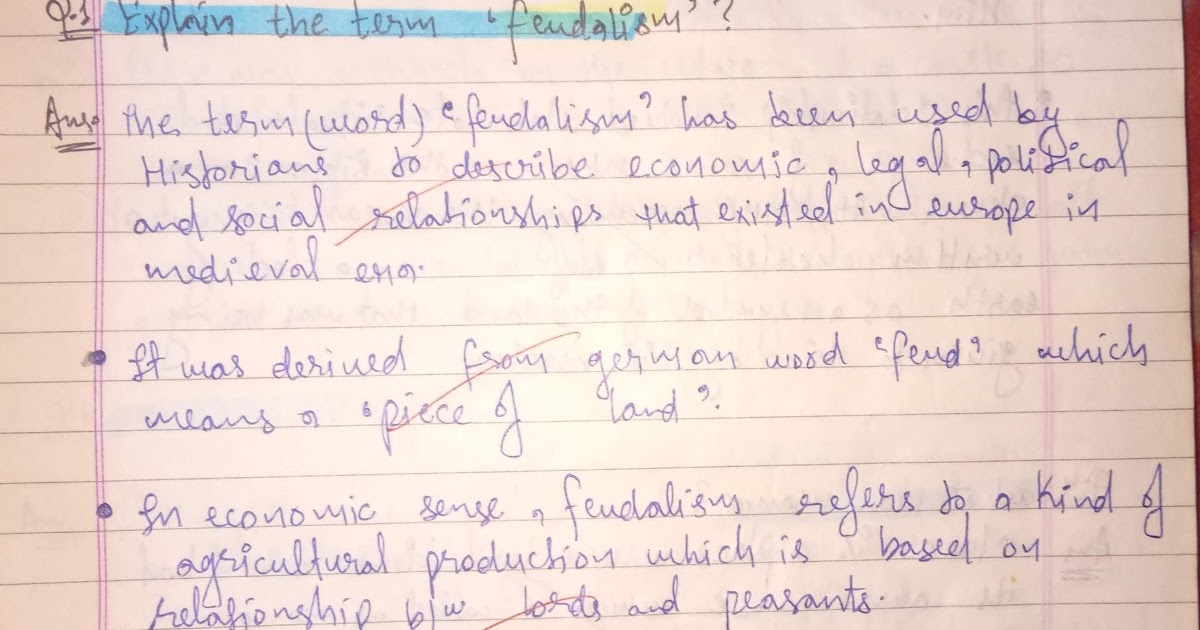 Q.1 Explain the term 'feudalism' ?
Ans. the term (word) 'feudalism' has been used by
Historians to describe economic, legal, political
and social relationships that existed in europe in
medieval erra.
• It was derived from german word 'feud' which
means a 'piece of land'.
• In economic sense, feudalism refers to a kind of
agricultural production which is based on
relationship b/w lords and peasants.